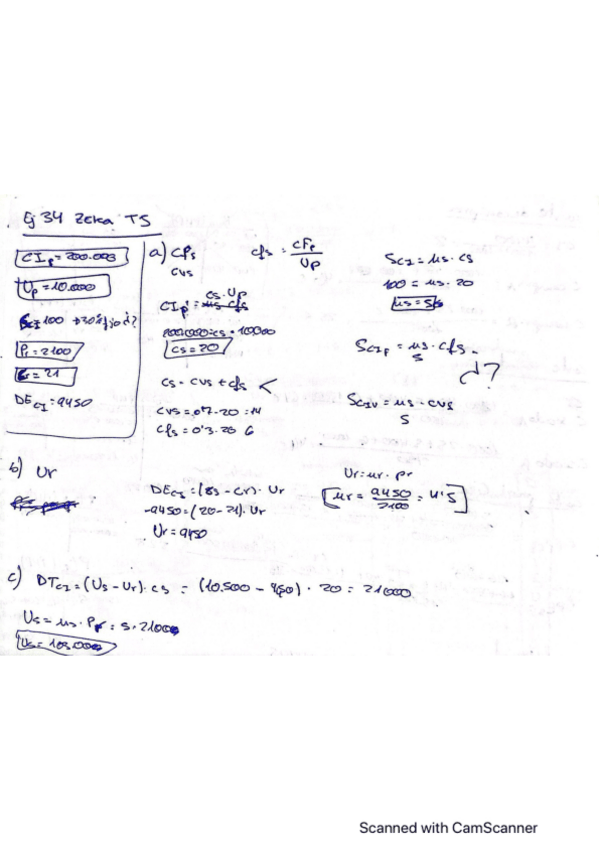 Ej 34 Zeka TS
CIp = 200.000
Up = 10.000
SCI 100 → 30% fijo ¿?
Pr = 2100
Cr = 21
DE CI = 9450
a) CPs
cvs
cfs = CFp / Up
cs · Up
CIp = us · cfs
200.000 = cs · 10000
cs = 20
cs = cvs + cfs <
cvs = 0'7 · 20 = 14
cfs = 0'3 · 20 6
SCI = us · cs
100 = us · 20
us = 5
SCIF = us · cfs
5
¿?
SCIV = us · cvs
5
b) Ur
DE CI = (cs - cr) · Ur
-9450 = (20 - 21) · Ur
Ur = 9450
Ur = ur · pr
[ur = 9450 / 2100 = 4'5]
c) DT CI = (Us - Ur) · cs = (10.500 - 9450) · 20 = 21000
Us = us · Pr = 5 · 2100
Us = 10.500
Scanned with CamScanner